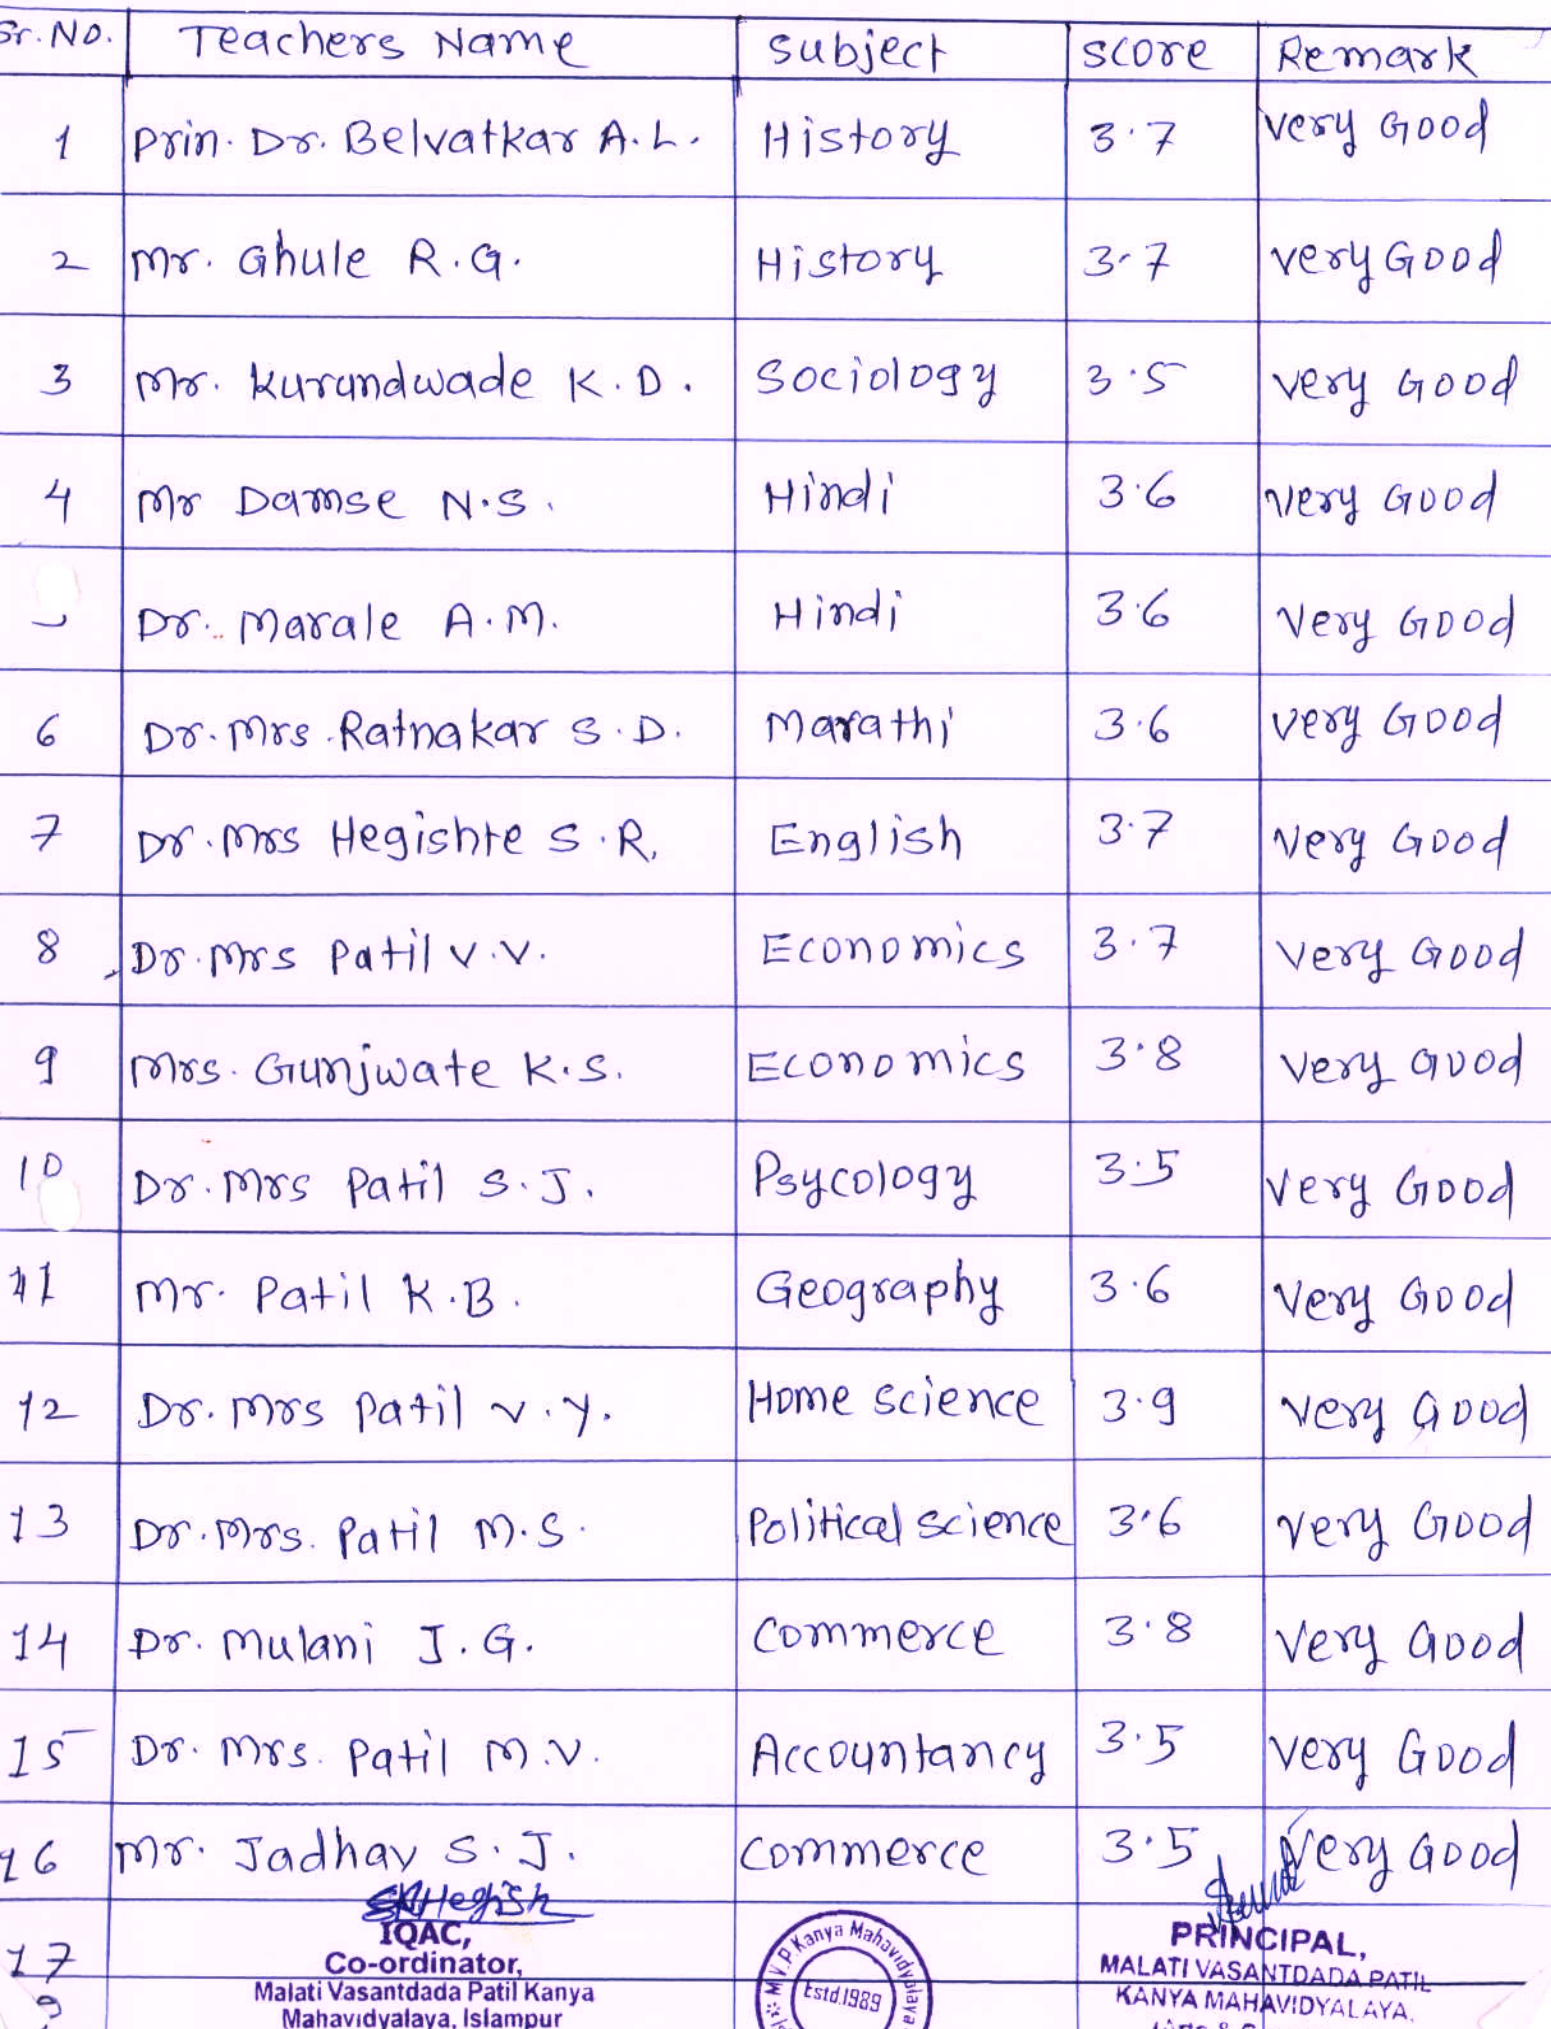 Sr. No. Teachers Name Subject Score Remark
1 Prin. Dr. Belvatkar A.L. History 3.7 Very Good
2 Mr. Ghule R.G. History 3.7 Very Good
3 Mr. Kurundwade K.D. Sociology 3.5 Very Good
4 Mr Damse N.S. Hindi 3.6 Very Good
Dr. Marale A.M. Hindi 3.6 Very Good
6 Dr. Mrs. Ratnakar S.D. Marathi 3.6 Very Good
7 Dr. Mrs Hegishte S.R. English 3.7 Very Good
8 Dr. Mrs Patil V.V. Economics 3.7 Very Good
9 Mrs. Gunjwate K.S. Economics 3.8 Very Good
10 Dr. Mrs Patil S.J. Psycology 3.5 Very Good
11 Mr. Patil K.B. Geography 3.6 Very Good
12 Dr. Mrs Patil V.Y. Home science 3.9 Very Good
13 Dr. Mrs. Patil M.S. Political science 3.6 Very Good
14 Dr. Mulani J.G. Commerce 3.8 Very Good
15 Dr. Mrs. Patil M.V. Accountancy 3.5 Very Good
16 Mr. Jadhav S.J. Commerce 3.5 Very Good
17
IQAC,
Co-ordinator,
Malati Vasantdada Patil Kanya
Mahavidyalaya, Islampur
M.V.P. Kanya Mahavidyalaya
Estd.1989
PRINCIPAL,
MALATI VASANTDADA PATIL
KANYA MAHAVIDYALAYA,